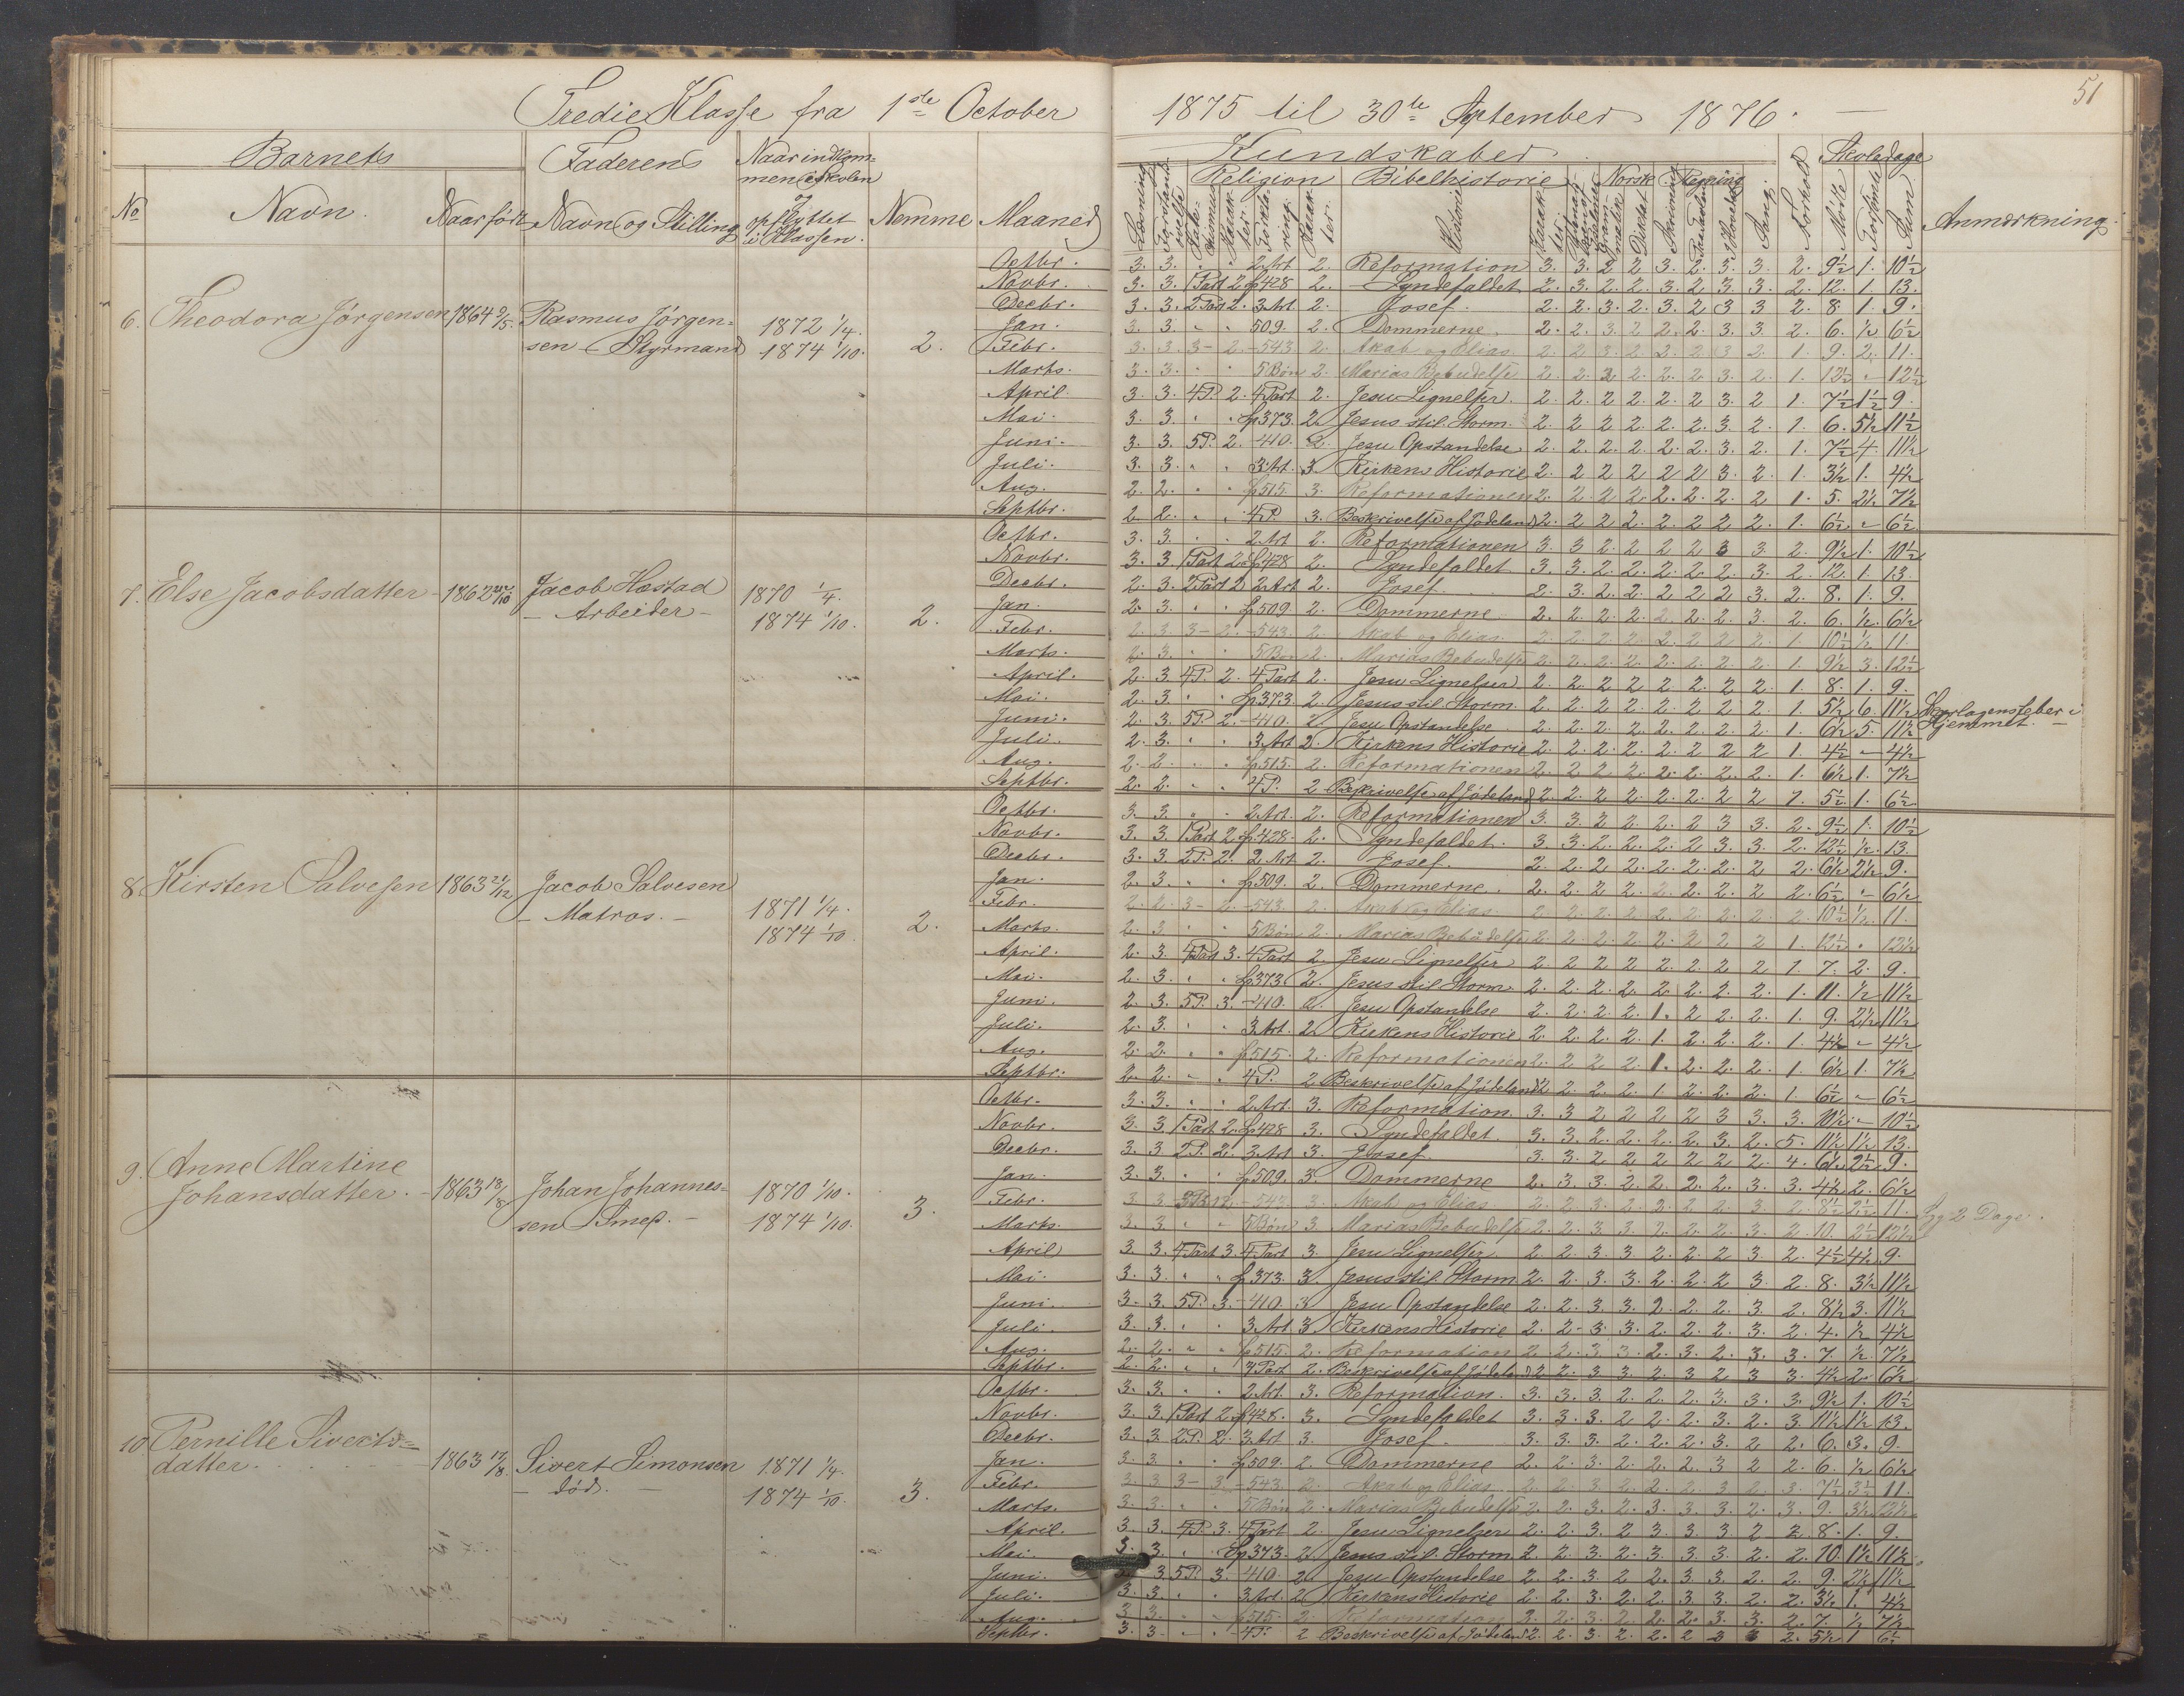 51
Tredie Klasse fra 1ste October 1875 til 30te September 1876.
Barnets Faderens Naar indkom-
men i Skolen
og
opflyttet
i Klassen.
No Navn. Naar født Navn og Stilling Nemme Maaned
Kundskaber Skoledage
Religion Bibelhistorie Norsk Regning
Historie Diktat Sang. Forhold Mødte Forsømte Sum Anmærkning.
6. Theodora Jørgensen 1864 9/5. Rasmus Jørgen-
sen Styrmand
1872 1/4.
1874 1/10. 2.
Octbr. 3. 3. " " 2 Art. 2. Reformation 3. 3. 2 2 3. 2. 3. 3. 2. 9½ 1. 10½
Novbr. 3. 3. 1 Part 2. Sp 428 2. Syndefaldet 2. 3. 2. 2. 3. 2 3. 3. 2. 12. 1. 13.
Decbr. 3. 3. 2 Part 2. 3 Art 2. Josef. 2. 2. 3. 2. 3. 2 3 3 2. 8. 1. 9.
Jan. 3. 3. " " 509. 2. Dommerne. 2. 2. 3. 2. 2. 2 3. 3. 2. 6. ½ 6½
Febr. 3. 3. 3 - 2. - 543. 2. Akab og Elias. 2. 2 3. 2. 2. 2 3 2. 1. 9. 2. 11.
Marts. 3. 3. " " 5 Bøn 2. Marias Bebudelse 2. 2. 2 2. 2. 2 3. 2. 1. 12½ " 12½
April. 3. 3. 4 P. 2. 4 Part 2. Jesu Lignelser. 2. 2. 2 2. 2. 2 3. 2 1. 7½ 1½ 9.
Mai. 3. 3. " " Sp 373. 2. Jesus stil. Storm. 2. 2 2 2. 2. 2. 3. 2. 1. 6. 5½ 11½
Juni. 3. 3. 5 P. 2. - 410. 2. Jesu Opstandelse 2. 2. 2. 2. 2. 2. 3. 2. 1. 7½ 4. 11½
Juli. 3. 3. " " 3 Art. 3. Kirkens Historie 2. 2 2 2 2 2 3. 2. 1. 3½ 1. 4½
Aug. 2. 2. " " Sp 515. 3. Reformationen 2. 2. 2 2. 2. 2. 2. 2 1. 5. 2½ 7½
Septbr. 2. 2. " " 4 P. 3. Beskrivelse af Jødeland 2. 2 2 2. 2. 2 2 2. 1. 6½ - 6½
7. Else Jacobsdatter 1862 Jacob Hæstad
- Arbeider -
1870 1/4.
1874 1/10. 2.
Octbr. 3. 3. " " 2 Art 2. Reformationen 3. 3 2. 2 2 2 3 3. 2. 9½ 1. 10½
Novbr. 3. 3. 1 Part 2. Sp 428 2. Syndefaldet 3. 3. 2. 2. 2. 2. 2. 3. 2. 12. 1. 13.
Decbr. 2. 3. 2 Part 2 2 Art 2. Josef. 2. 3. 2. 2. 2 2 2 3. 2. 8. 1. 9.
Jan. 2. 3. " " Sp 509. 2. Dommerne 2. 2. 2. 2. 2 2. 2. 3. 2. 6. ½. 6½
Febr. 2. 3. 3 - 2. - 543. 2. Akab og Elias. 2. 2. 2. 2. 2. 2 2. 2. 1. 10½ ½ 11.
Marts. 2. 3. " " 5 Bøn 2. Marias Bebudelse 2. 2. 2. 2. 2. 2. 2. 2. 1. 9½ 3. 12½
April. 2. 3. 4 P. 2. 4 Part 2. Jesu Lignelser 2. 2. 2 2 2 2. 2 2. 1. 8. 1. 9.
Mai. 2. 3. " " Sp 373. 2. Jesus stil. Storm. 2. 2. 2 2. 2. 2 2 2. 1. 5½ 6. 11½ Skarlagensfeber i
Juni. 2. 3. 5 P. 2. - 410. 2. Jesu Opstandelse 2. 2. 2. 2. 2. 2. 2. 2. 1. 6½ 5. 11½ Hjemmet. -
Juli. 2. 3. " " 3 Art 2. Kirkens Historie 2. 2. 2. 2. 2. 2 2 2 1. 4½ - 4½
Aug. 2. 2. " " Sp 515. 2. Reformationen 2. 2 2 2. 2. 2. 2. 2. 1. 6½ 1. 7½
Septbr. 2. 2. " " 4 P. 2 Beskrivelse af Jødeland 2. 2. 2 2. 2. 2. 2 2 1. 5½ 1. 6½
8. Kirsten Salvesen 1863 21/12 Jacob Salvesen
- Matros. -
1871 1/4.
1874 1/10. 2.
Octbr. 3. 3. " " 2 Art. 2. Reformationen 3. 3. 2 2. 2. 2 3 3. 2. 9½ 1. 10½
Novbr. 3. 3. 1 Part 2. Sp 428. 2. Syndefaldet. 3. 3. 2. 2. 2. 2 3. 3. 2. 12½ ½. 13.
Decbr. 3. 3. 2 P. 2. 2 Art 2. Josef. 2. 2. 2 2. 2. 2. 2. 2 2. 6½ 2½ 9.
Jan. 2. 3. " " Sp 509. 2. Dommerne. 2. 2. 2 2. 2. 2. 2. 2 2. 6½ - 6½
Febr. 2. 2. 3 - 2. - 543. 2. Akab og Elias. 2. 2. 2. 2. 2. 2. 2. 2. 2. 10½ ½. 11.
Marts. 2. 3. " " 5 Bøn 2. Marias Bebudelse 2. 2. 2. 2. 2. 2 2 2 1. 12½ " 12½
April. 2. 3. 4 Part 3. 4 Part 2. Jesu Lignelser 2. 2 2 2 2. 2. 2 2 1. 7. 2. 9.
Mai. 2. 3. " " Sp 373 2. Jesus stil. Storm. 2. 2. 2. 2. 2. 2. 2. 2. 1. 11. ½ 11½
Juni. 2. 3. 5 P. 3. - 410. 2. Jesu Opstandelse 2. 2. 2. 2. 1. 2 2. 2. 1. 9. 2½ 11½
Juli. 2. 3. " " 3 Art. 2. Kirkens Historie 2. 2. 2. 2. 1. 2. 2. 2. 1. 4½ - 4½
Aug. 2. 2. " " Sp 515. 2. Reformationen 2. 2 2 2 1. 2. 2. 2. 1. 6½ 1. 7½
Septbr. 2. 2. " " 4 P. 2 Beskrivelse af Jødeland 2 2. 2. 2. 1 2. 2. 2. 1. 6½ - 6½
9. Anne Martine
Johansdatter. 1863 18/8 Johan Johannes-
sen Smed. -
1870 1/10.
1874 1/10. 3.
Octbr. 3. 3. " " 2 Art. 3. Reformation 3. 3 2 2 2 2 3 3. 3. 10½ - 10½
Novbr. 3. 3. 1 Part 2. Sp 428 3. Syndefaldet. 3. 3. 2. 2. 2. 2. 3. 2. 5. 11½ 1½ 13.
Decbr. 3. 3. 2 P. 2. 3 Art 3. Josef. 3. 3. 2 2 2 2 2 2. 4. 6½ 2½ 9.
Jan. 3. 3. " " Sp 509. 3. Dommerne 2. 3. 3. 2. 2. 2. 2. 3. 3. 4½ 2. 6½
Febr. 3. 3. 2. - 543. 3. Akab og Elias 2. 2. 3. 2. 2. 2. 2. 3. 2. 8½ 2½ 11. Syg 2 Dage.
Marts. 3. 3. " " 5 Bøn 3. Marias Bebudelse 2. 2. 3. 3. 2. 2. 2. 3. 2. 10. 2½ 12½
April 3. 3. 4 Part 3. 4 Part 3. Jesu Lignelser 2. 2. 3 3 2. 2. 2 3 2. 4½ 4½ 9.
Mai. 3. 3. " " Sp 373. 3. Jesus stil. Storm 2. 2. 3. 3. 2. 2. 2 3. 2. 8. 3½ 11½
Juni. 3. 3. 5 P. 3. - 410. 3. Jesu Opstandelse 2. 2. 3 3. 2. 2. 2. 3 2. 8½ 3. 11½
Juli. 3. 3. " " 3 Art 3. Kirkens Historie 2. 2. 3. 3. 2. 2. 2. 3. 2. 4. ½ 4½
Aug. 2. 2. " " Sp 515. 2. Reformation 2. 2. 3. 3. 2. 3. 2. 3. 3. 7 ½. 7½
Septbr. 2. 2. " " 4 Part 2. Beskrivelse af Jødeland 2 2. 3. 3 2. 3 2 3 3. 4½ 2 6½
10 Pernille Siverts-
datter. 1863 Sivert Simonsen
- død. -
1871 1/4.
1874 1/10. 3.
Octbr. 3. 3. " " 2 Art. 3. Reformation. 3. 3. 3. 2. 2. 2. 3. 3. 3. 9½ 1. 10½
Novbr. 3. 3. 1 Part 2. Sp 428. 3. Syndefaldet 3. 3. 3. 2 2. 2. 3. 2. 3 11½ 1½ 13.
Decbr. 3. 3. 2 P. 2. 3 Art 3. Josef. 3. 3. 3. 2. 2. 2. 3. 2 2. 6. 3. 9.
Jan. 3. 3 " " Sp 509. 2. Dommerne 2. 2. 3. 2. 2. 2. 3 2 2. 6. ½ 6½
Febr. 3. 3 3 - 3. - 543. 2. Akab og Elias. 2. 2. 3. 2. 2. 2. 3. 2. 3. 7½ 3½ 11.
Marts. 3. 3. " " 5 Bøn 2. Marias Bebudelse 2 2. 3. 2. 3. 3. 3. 2. 3. 9. 3½ 12½
April. 3. 3. 4 P. 3. 4 Part 2. Jesu Lignelser 2. 2. 3. 2 3. 3. 3 2 2. 8. 1. 9.
Mai. 3. 3. " " Sp 373. 2. Jesus stil. Storm 2. 2 3. 2. 3. 3. 3. 2. 2. 10. 1½ 11½
Juni. 3 5 P. 3. 410. 2. Jesu Opstandelse 2. 2. 3. 2 2. 3. 3. 2. 2 9. 2½ 11½
Juli. 3. 3. " " 3 Art. 2. Kirkens Historie 2. 2 3. 2. 2. 3 3. 2. 2. 3½ 1. 4½
Aug. 3. 3. " " Sp 515. 2. Reformation 2. 2. 3. 2. 2. 2. 3. 3. 2. 7. ½ 7½
Septbr. 3. 3 " " 4 P. 2 Beskrivelse af Jødeland 2. 2. 3. 2. 2. 2 3 2. 5½ 1 6½